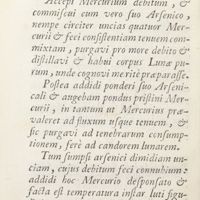 Accepi Mercurium debitum, &
commiscui cum vero suo Arsenico,
nempe circiter uncias quatuor Mer-
curii & feci consistentiam tenuem com-
mixtam, purgavi pro more debito &
distillavi & habui corpus Lunæ pu-
rum, unde cognovi me ritè præparasse.
Postea addidi ponderi suo Arseni-
cali & augebam pondus pristini Mer-
curii, in tantum ut Mercurius præ-
valeret ad fluxum usque tenuem, &
sic purgavi ad tenebrarum consump-
tionem, ferè ad candorem lunarem.
Tum sumpsi arsenici dimidiam un-
ciam, cujus debitum feci connubium:
addidi hoc Mercurio desponsato &
facta est temperatura instar luti figu-